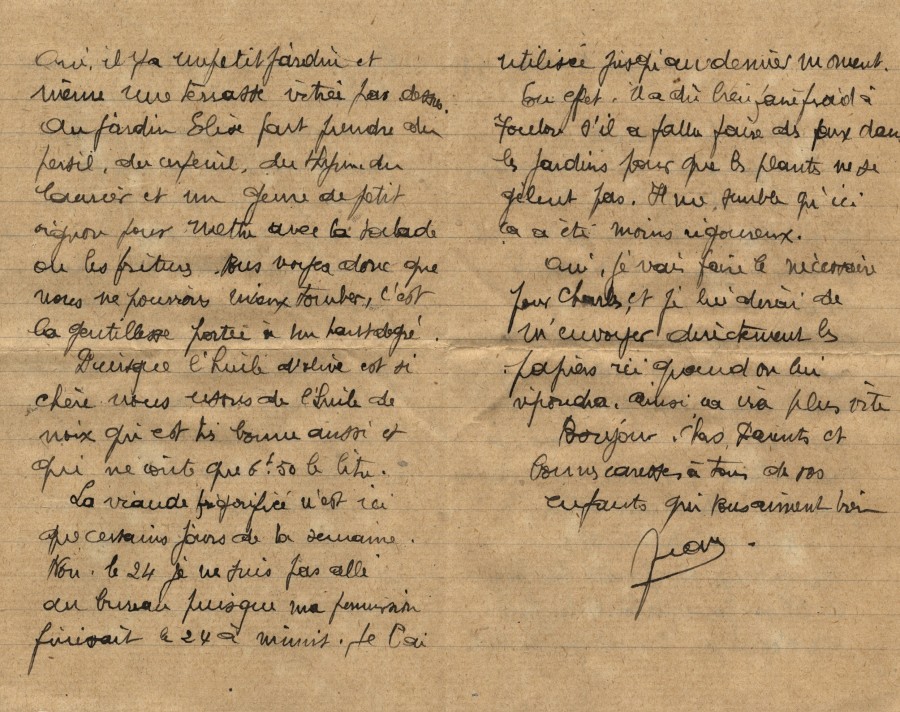 Oui, il y a un petit jardin et
même une terrasse vitrée par dessus.
Au jardin Elise fait prendre du
persil, du cerfeuil, du thym, du
laurier et un genre de petit
oignon pour mettre avec la salade
ou les fritures. Vous voyez donc que
nous ne pouvions mieux tomber, c'est
la gentillesse portée à un haut degré.
Puisque l'huile d'olive est si
chère nous usons de l'huile de
noix qui est très bonne aussi et
qui ne coûte que 6f50 le litre.
La viande frigorifiée n'est ici
que certains jours de la semaine.
Non. le 24 je ne suis pas allé
au bureau puisque ma permission
finissait le 24 à minuit. Je l'ai
utilisée jusqu'au dernier moment.
En effet. Il a dû bien faire froid à
Toulon s'il a fallu faire des feux dans
les jardins pour que les plants ne se
gèlent pas. Il me semble qu'ici
ça a été moins rigoureux.
Oui, je vais faire le nécessaire
pour Charles, et je lui dirai de
m'envoyer directement les
papiers ici quand on lui
répondra. ainsi ça ira plus vite
Bonjour. Chers Parents et
bonnes caresses à tous de vos
enfants qui vous aiment bien
Jean.